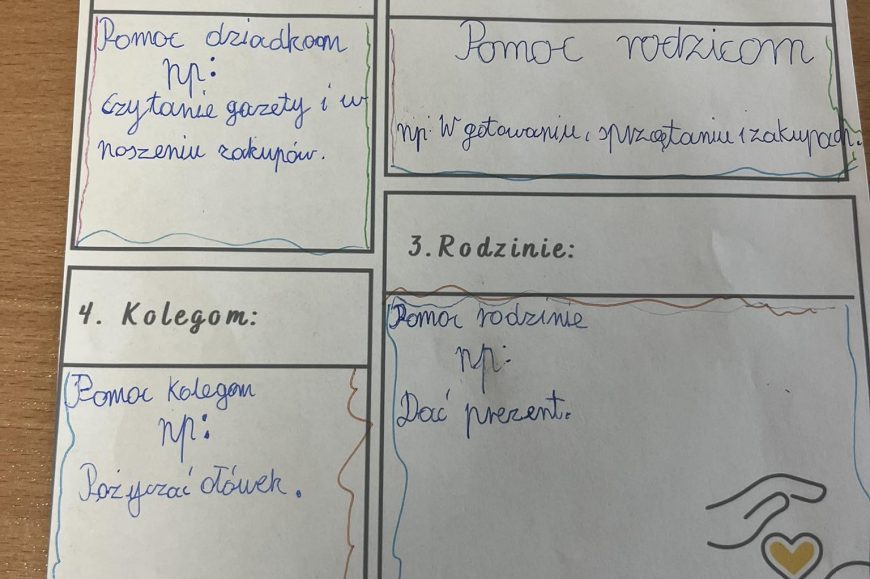 Pomoc dziadkom
np:
czytanie gazety i w
noszeniu zakupów.
Pomoc rodzicom
np: W gotowaniu, sprzątaniu i zakupach.
3. Rodzinie:
Pomoc rodzinie
np:
Dać prezent.
4. Kolegom:
Pomoc kolegom
np:
Pożyczać ołówek.